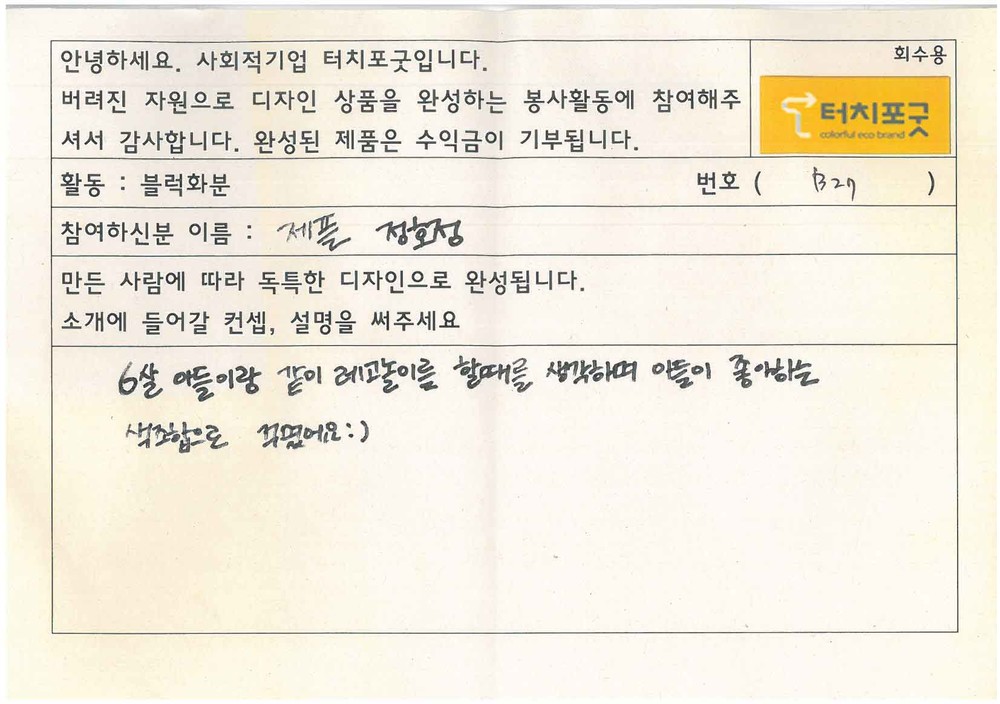 회수용
안녕하세요. 사회적기업 터치포굿입니다.
버려진 자원으로 디자인 상품을 완성하는 봉사활동에 참여해주
셔서 감사합니다. 완성된 제품은 수익금이 기부됩니다.
터치포굿
colorful eco brand
활동 : 블럭화분
번호 ( B27 )
참여하신분 이름 : 제플 정호정
만든 사람에 따라 독특한 디자인으로 완성됩니다.
소개에 들어갈 컨셉, 설명을 써주세요
6살 아들이랑 같이 레고놀이를 할때를 생각하며 아들이 좋아하는
색조합으로 꾸몄어요:)